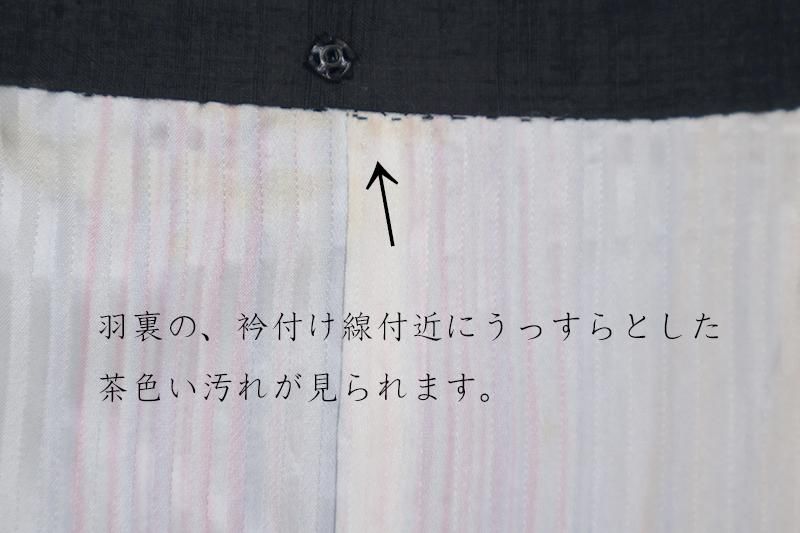 羽裏の、衿付け線付近にうっすらとした
茶色い汚れが見られます。